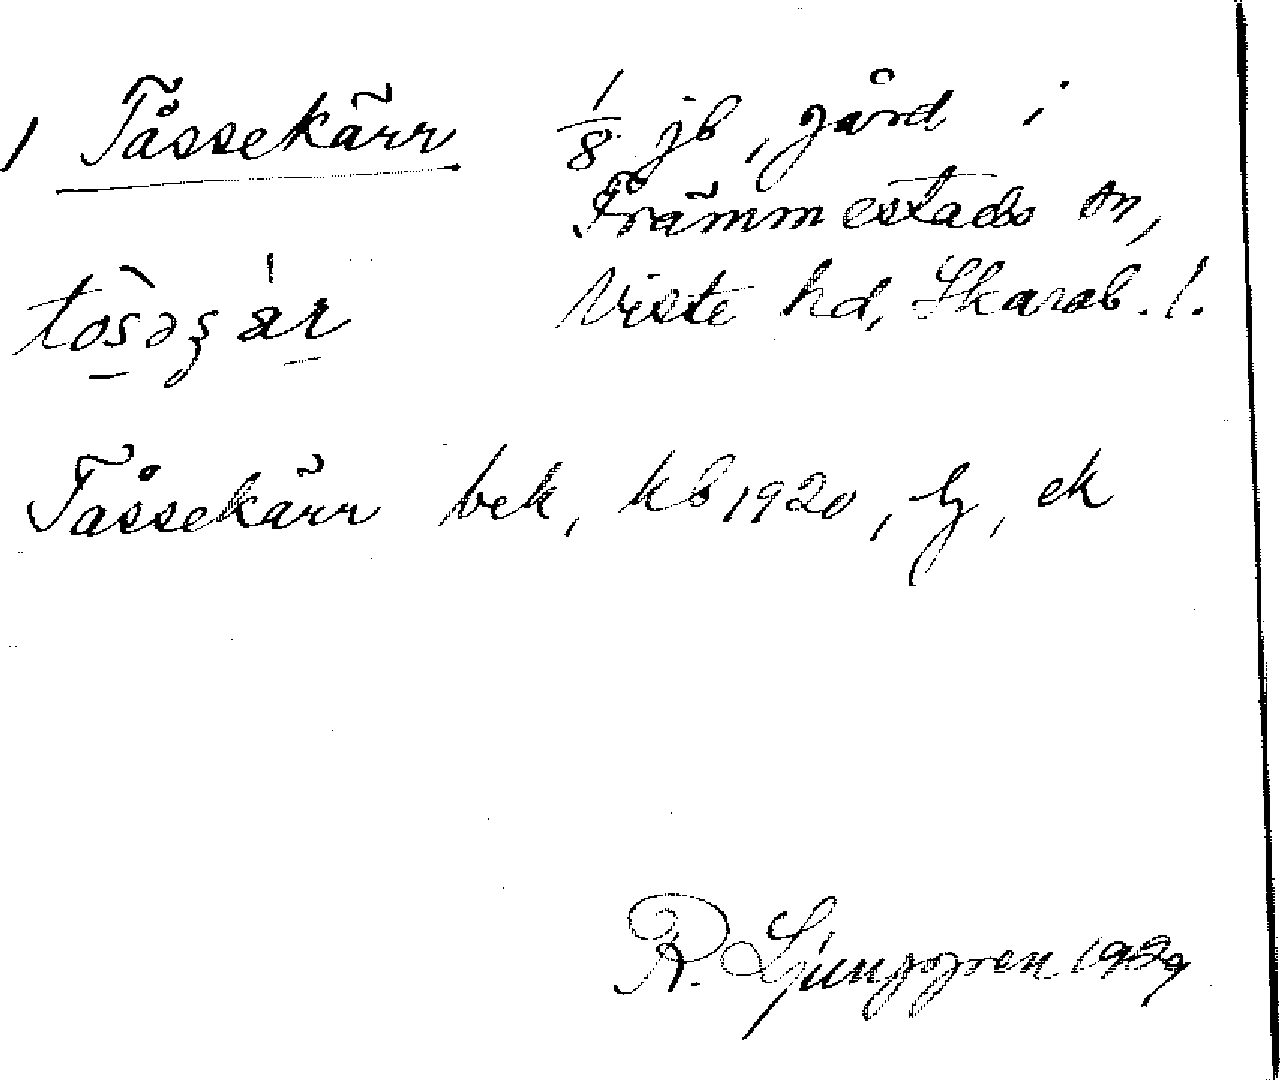 1 Tåssekärr 1/8 jb, gård i
Främmestads sn,
Viste hd, Skarab. l.
Tåssekärr bek, kb 1920, , ek
R. Ljunggren 1929